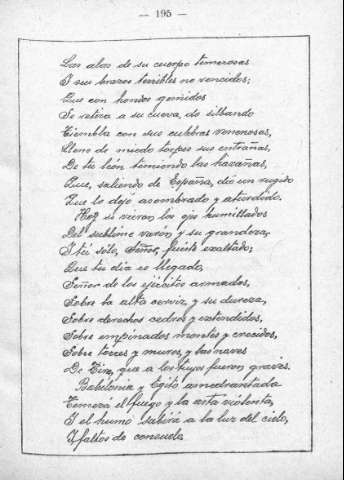 — 195 —
Las alas de su cuerpo temerosas
I sus brazos terribles no vencidos;
Que con hondos gemidos
Se retira a su cueva, do silbando
Tiembla con sus culebras venenosas,
Lleno de miedo torpe sus entrañas,
De tu león temiendo las hazañas,
Que, saliendo de España, dio un rugido
Que lo dejó asombrado y aturdido.
Hoy se vieron los ojos humillados
Del sublime varón y su grandeza,
I tú sólo, Señor, fuiste exaltado;
Que tu día es llegado,
Señor de los ejércitos armados,
Sobre la alta cerviz y su dureza,
Sobre derechos cedros y extendidos,
Sobre empinados montes y crecidos,
Sobre torres y muros, y las naves
De Tiro, que a los tuyos fueron graves.
Babilonia y Egito amedrentada
Temerá el fuego y la asta violenta,
I el humo subirá a la luz del cielo,
I faltos de consuelo